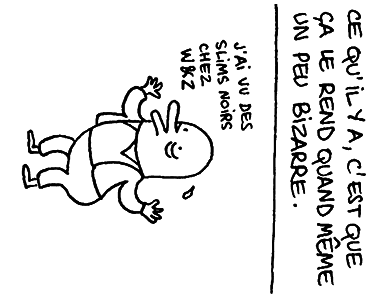 CE QU'IL Y A, C'EST QUE
ÇA LE REND QUAND MÊME
UN PEU BIZARRE.
J'AI VU DES
SLIMS NOIRS
CHEZ
W&Z